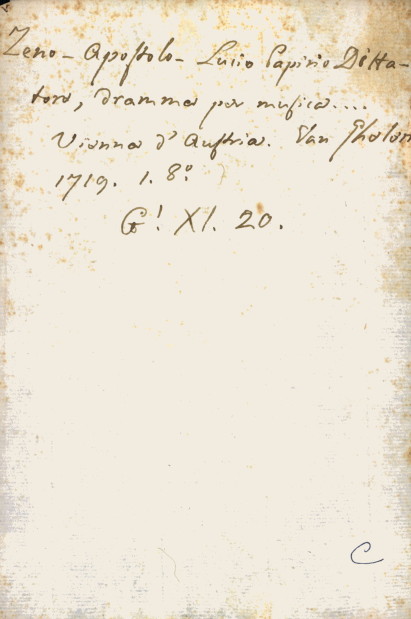 Zeno - Apostolo - Lucio Papirio Ditta-
tore, dramma per musica....
Vienna d'Austria. Van Ghelen
1719. 1. 8.º
G! XI. 20.
C